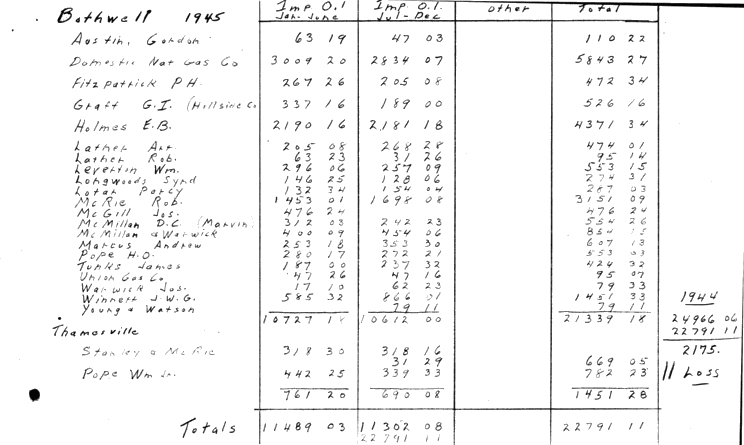 Bothwell 1945 Imp. O.I. Jan. June Imp. O.I. Jul - Dec other Total
Austin, Gordon 63 19 47 03 110 22
Domestic Nat Gas Co 3009 20 2834 07 5843 27
Fitzpatrick P.H. 267 26 205 08 472 34
Graff G.I. (Hillside Co 337 16 189 00 526 16
Holmes E.B. 2190 16 2181 18 4371 34
Lather Art 205 08 268 28 474 01
Lather Rob. 63 23 31 26 95 14
Leverton Wm. 296 06 257 09 553 15
Longwoods Synd 146 25 128 06 274 31
Lotan Percy 132 34 154 04 287 03
McRie Rob. 1453 01 1698 08 3151 09
McGill Jos. 476 24 476 24
McMillan D.C. (Marvin) 312 03 242 23 554 26
McMillan & Warwick 400 09 454 06 854 15
Marcus Andrew 253 18 353 30 607 13
Pope H.O. 280 17 272 21 553 03
Tunks James 187 00 237 32 424 32
Union Gas Co 47 26 47 16 95 07
Warwick Jos. 17 10 62 23 79 33
Winnett J.W.G. 585 32 866 01 1451 33 1944
Young & Watson 79 11 79 11
10727 18 10612 00 21339 18 24966 06
Thamesville 22791 11
Stanley & McRie 318 30 318 16 2175.
31 29 669 05
Pope Wm Jr. 442 25 339 33 782 23 // Loss
761 20 690 08 1451 28
Totals 11489 03 11302 08 22791 11
22791 11